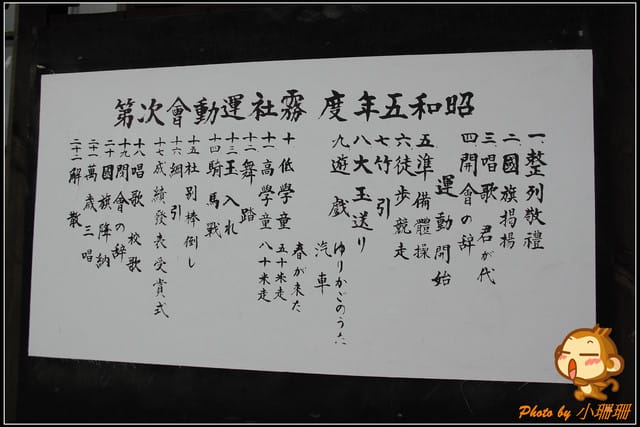 昭和五年度 霧社運動會次第
一、整列敬禮
二、國旗掲揚
三、唱歌 君が代
四開會の辞
運動開始
五準備體操
六徒歩競走
七竹引
八大玉送り
九遊戯 ゆりかごのうた
汽車
春が来た
十低學童 五十米走
十一高學童 八十米走
十二舞踏
十三玉入れ
十四騎馬戰
十五社別棒倒し
十六綱引
十七成績發表受賞式
十八唱歌 校歌
十九閉會の辞
二十國旗降納
二十一萬歳三唱
二十二解散
Photo by 小珊珊